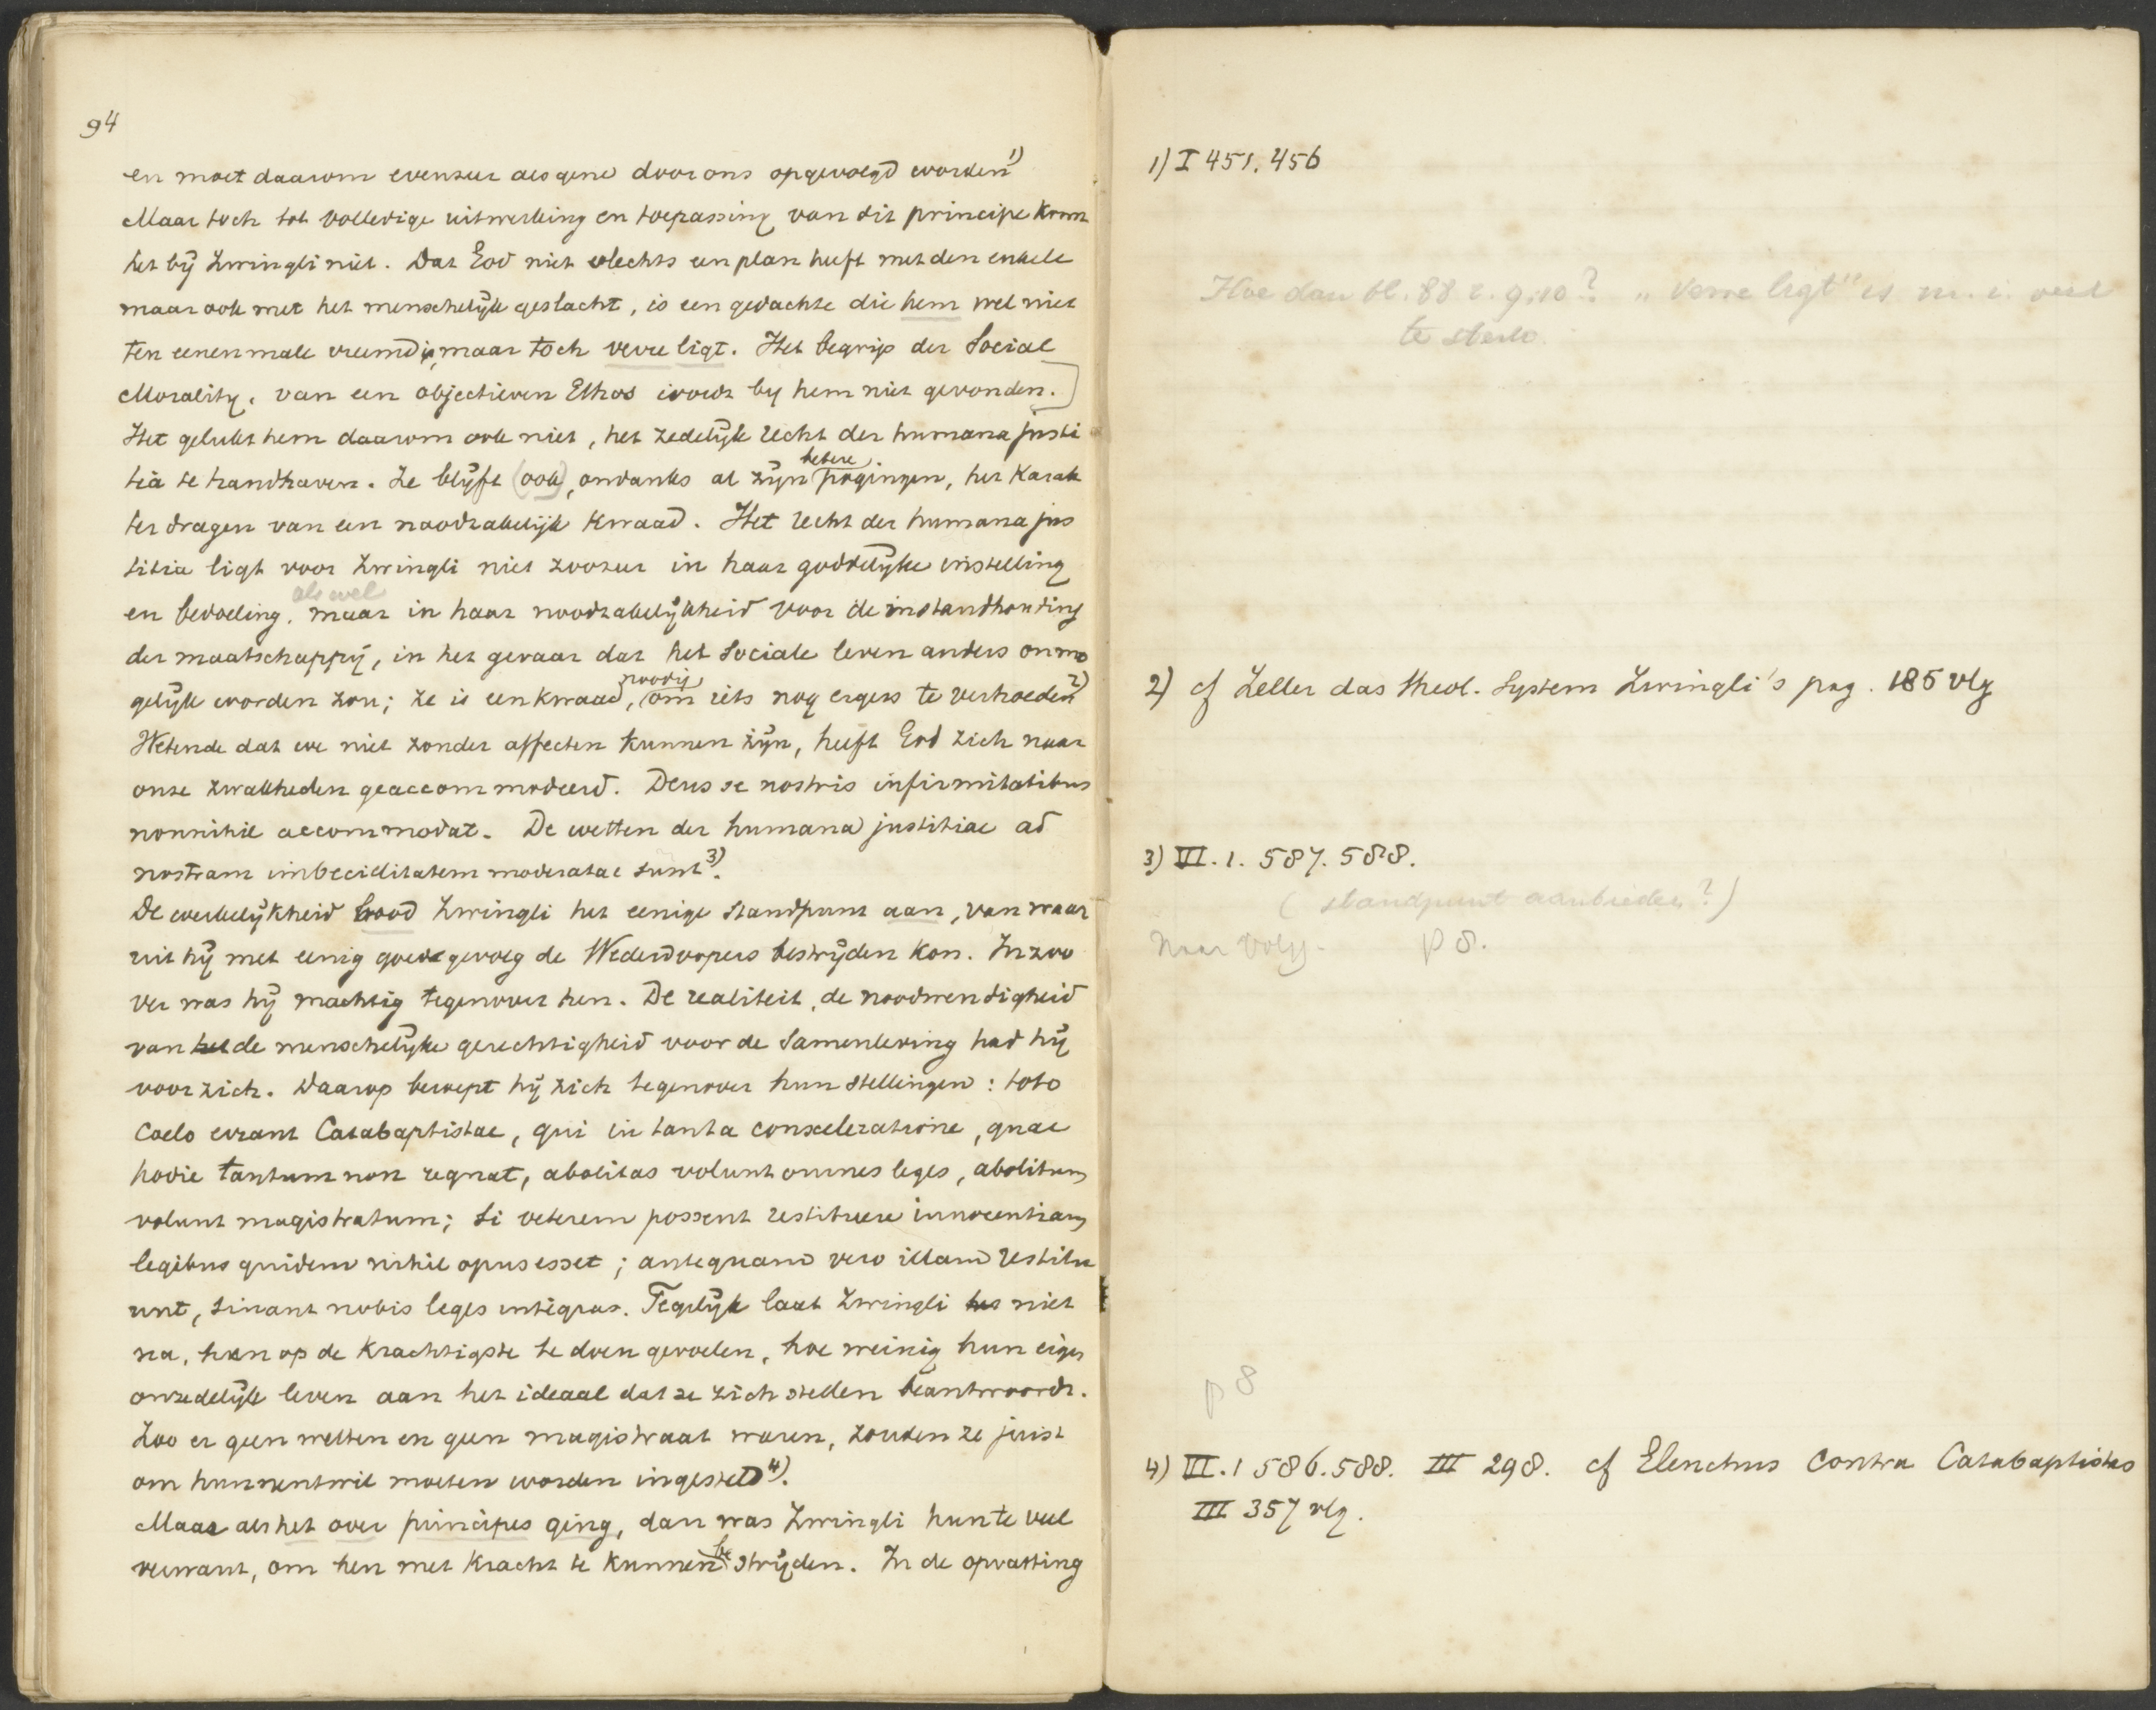 94
en moet daarom evenzeer als gene door ons opgevolgd worden 1)
Maar toch tot volledige uitwerking en toepassing van dit principe komt
het bij Zwingli niet. Dat God niet slechts een plan heeft met den enkele
maar ook met het menschelijk geslacht, is een gedachte die hem wel niet
ten eenenmale vreemd is, maar toch verre ligt. Het begrip der Social
Morality, van een objectieven Ethos wordt by hem niet gevonden.
Het gelukt hem daarom ook niet, het zedelijk recht der humana justi
tia te handhaven. Ze blijft (ook), ondanks al zijn betere pogingen, het karak
ter dragen van een noodzakelijk kwaad. Het recht der humana jus
titia ligt voor Zwingli niet zoozeer in haar goddelijke instelling
en bedoeling, als wel maar in haar noodzakelijkheid voor de instandhouding
der maatschappij, in het gevaar dat het sociale leven anders onmo
gelijk worden zou; ze is een kwaad, noodig om iets nog ergers te verhoeden 2)
Wetende dat we niet zonder affecten kunnen zijn, heeft God zich naar
onze zwakheden geaccommodeerd. Deus se nostris infirmitatibus
nonnihil accommodat. De wetten der humana justitiae ad
nostram imbecillitatem moderatae sunt 3).
De werkelijkheid bood Zwingli het eenige standpunt aan, van waar
uit hij met eenig goed gevolg de Wederdoopers bestrijden kon. In zoo
ver was hij machtig tegenover hen. De realiteit, de noodwendigheid
van de menschelijke gerechtigheid voor de samenleving had hij
voor zich. Daarop beroept hij zich tegenover hun stellingen: toto
coelo errant Catabaptistae, qui in tanta consceleratione, quae
hodie tantum non regnat, abolitas volunt omnes leges, abolitum
volunt magistratum; si veterem possent restituere innocentiam
legibus quidem nihil opus esset; antequam vero illam restitu
unt, sinant nobis leges integras. Tegelijk laat Zwingli niet
na, hen op de krachtigste te doen gevoelen, hoe weinig hun eigen
onzedelijk leven aan het ideaal dat ze zich stellen beantwoordt.
Zoo er geen wetten en geen magistraat waren, zouden ze juist
om hunnentwil moeten worden ingesteld 4).
Maar als het over principes ging, dan was Zwingli hun te veel
verwant, om hen met kracht te kunnen bestrijden. In de opvatting
1) I 451. 456
Hoe dan bl. 88 r. 9, 10? "verre ligt" is m. i. veel
te sterk.
2) cf Zeller das theol. System Zwingli's pag. 185 vlg
3) VI. 1. 587. 588.
(standpunt aanbieden?)
Naar volg. p 8.
p 8
4) VI. 1 586. 588. III 298. cf Elenchus contra Catabaptistas
III 357 vlg.